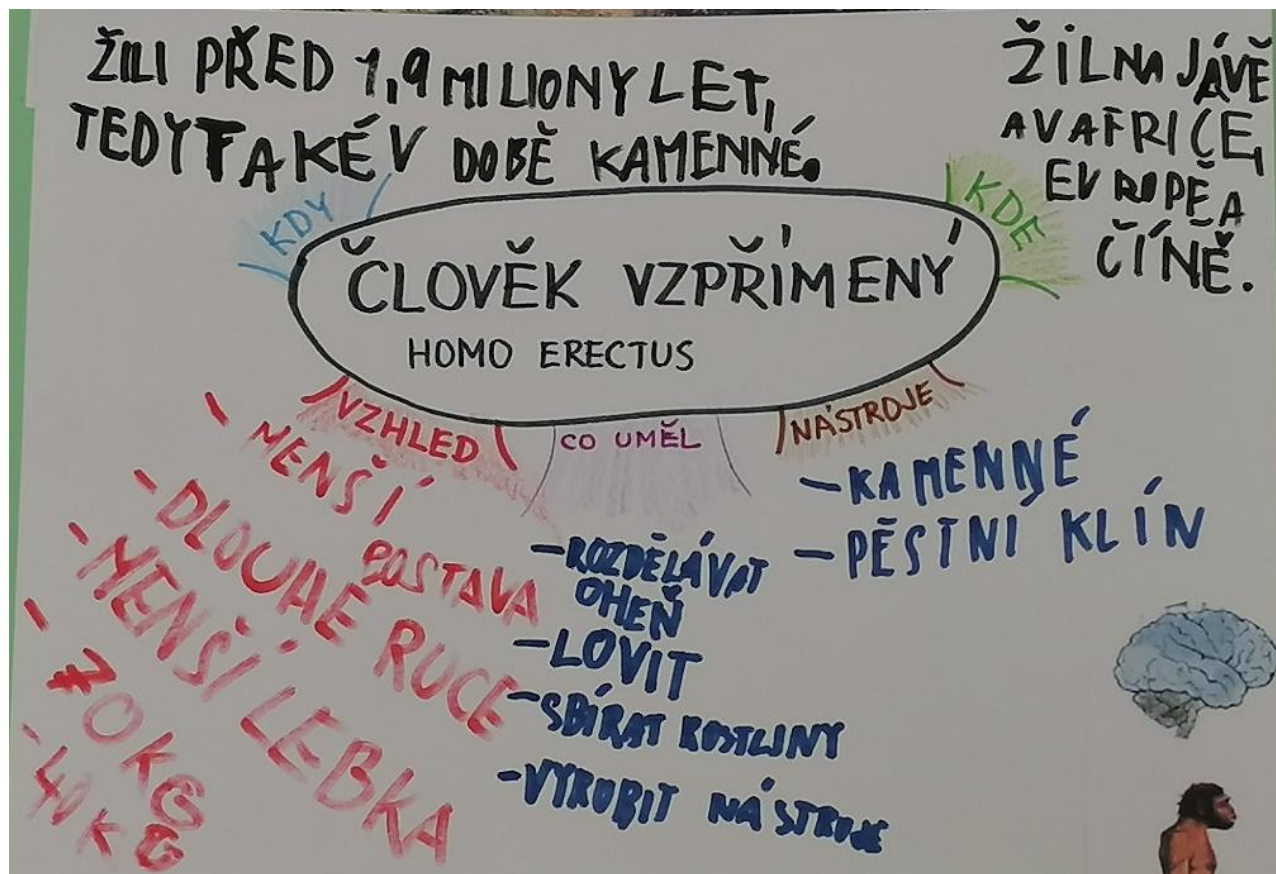 ŽILI PŘED 1,9 MILIONY LET,
TEDY TAKÉ V DOBĚ KAMENNÉ.
ŽIL NA JÁVĚ
A V AFRICE,
EVROPĚ A
ČÍNĚ.
KDY
KDE
ČLOVĚK VZPŘÍMENÝ
HOMO ERECTUS
VZHLED
CO UMĚL
NÁSTROJE
- MENŠÍ
POSTAVA
- DLOUHÉ RUCE
- MENŠÍ LEBKA
- 70 KG
- 40 KG
- ROZDĚLÁVAT
OHEŇ
- LOVIT
- SBÍRAT ROSTLINY
- VYROBIT NÁSTROJE
- KAMENNÉ
- PĚSTNI KLÍN